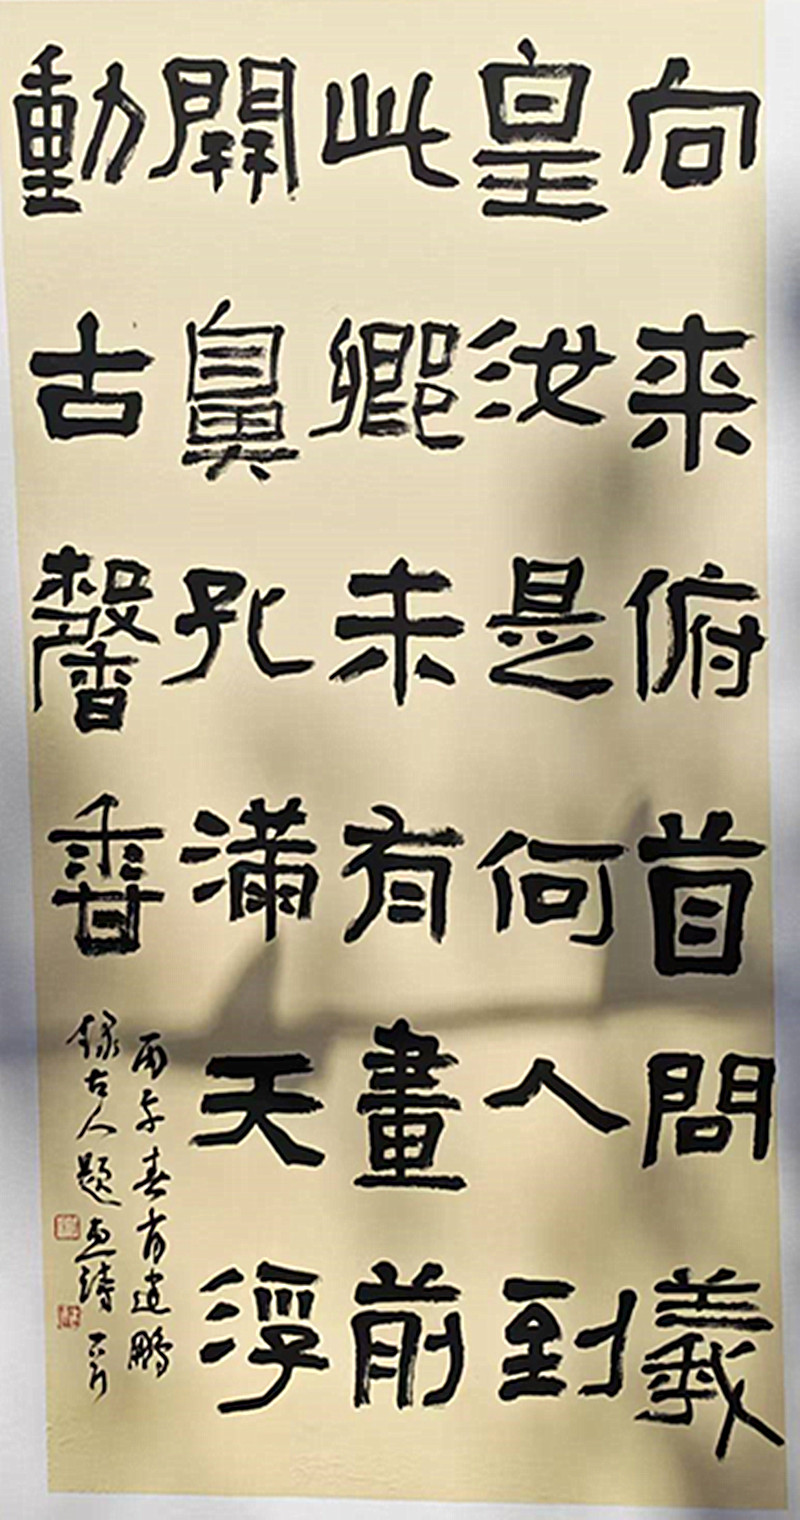 向來俯首問羲
皇汝是何人到
此鄉未有畫前
開鼻孔滿天浮
動古馨香
丙午春首建鵬
錄古人題画詩一首